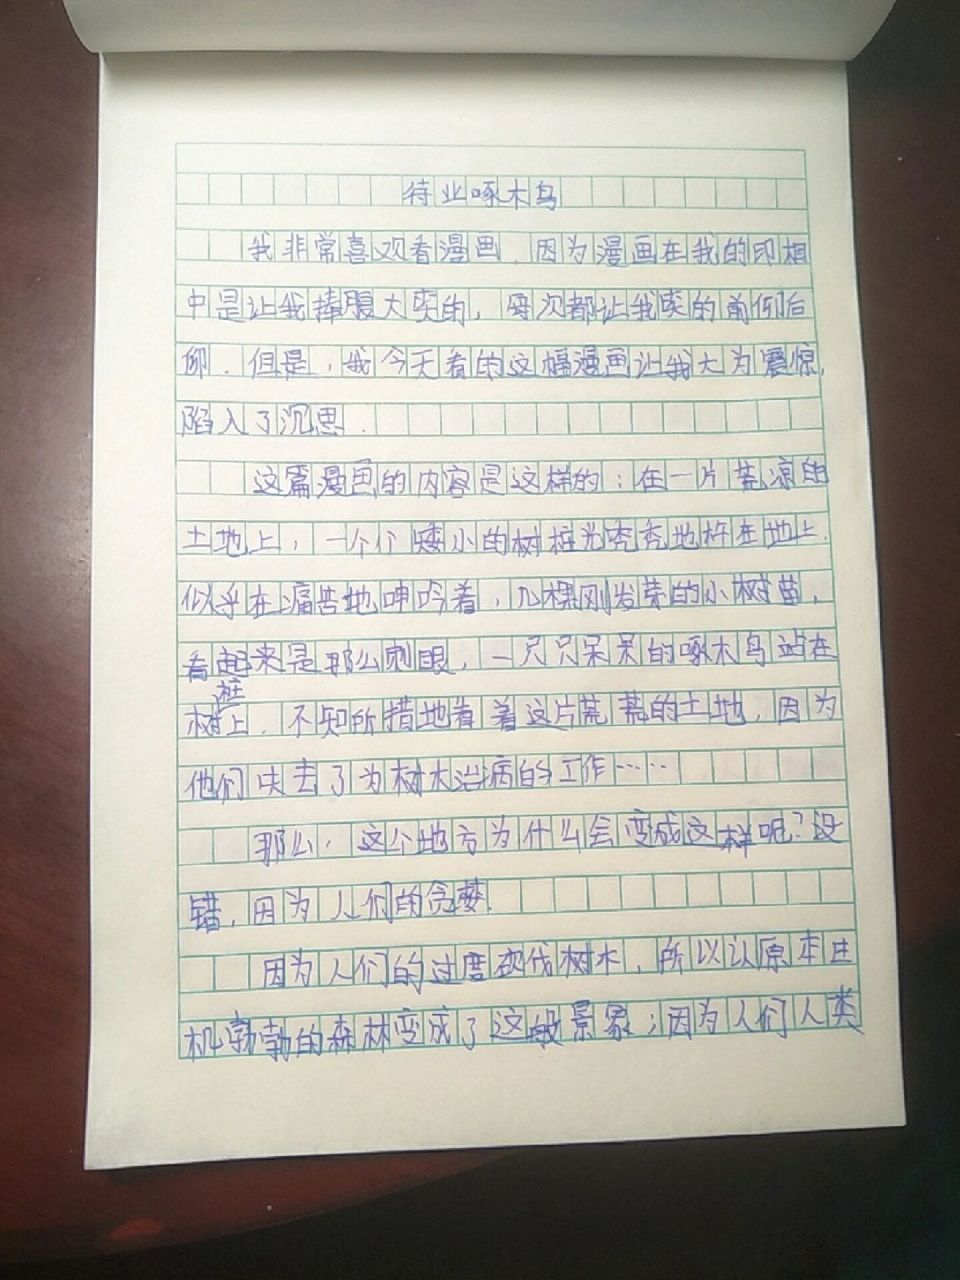 待业啄木鸟
我非常喜欢看漫画.因为漫画在我的印相
中是让我捧腹大笑的，每次都让我笑的前何后
仰.但是，我今天看的这幅漫画让我大为震惊，
陷入了沉思.
这篇漫画的内容是这样的：在一片荒凉的
土地上，一个个矮小的树桩光秃秃地杵在地上.
似乎在痛苦地呻吟着，几棵刚发芽的小树苗，
看起来是那么刺眼，一只只呆呆的啄木鸟站在
树桩上.不知所措地看着这片荒荒的土地，因为
他们失去了为树木治病的工作……
那么，这个地方为什么会变成这样呢？没
错，因为人们的贪婪.
因为人们的过度砍伐树木，所以认原本生
机勃勃的森林变成了这般景象；因为人们人类